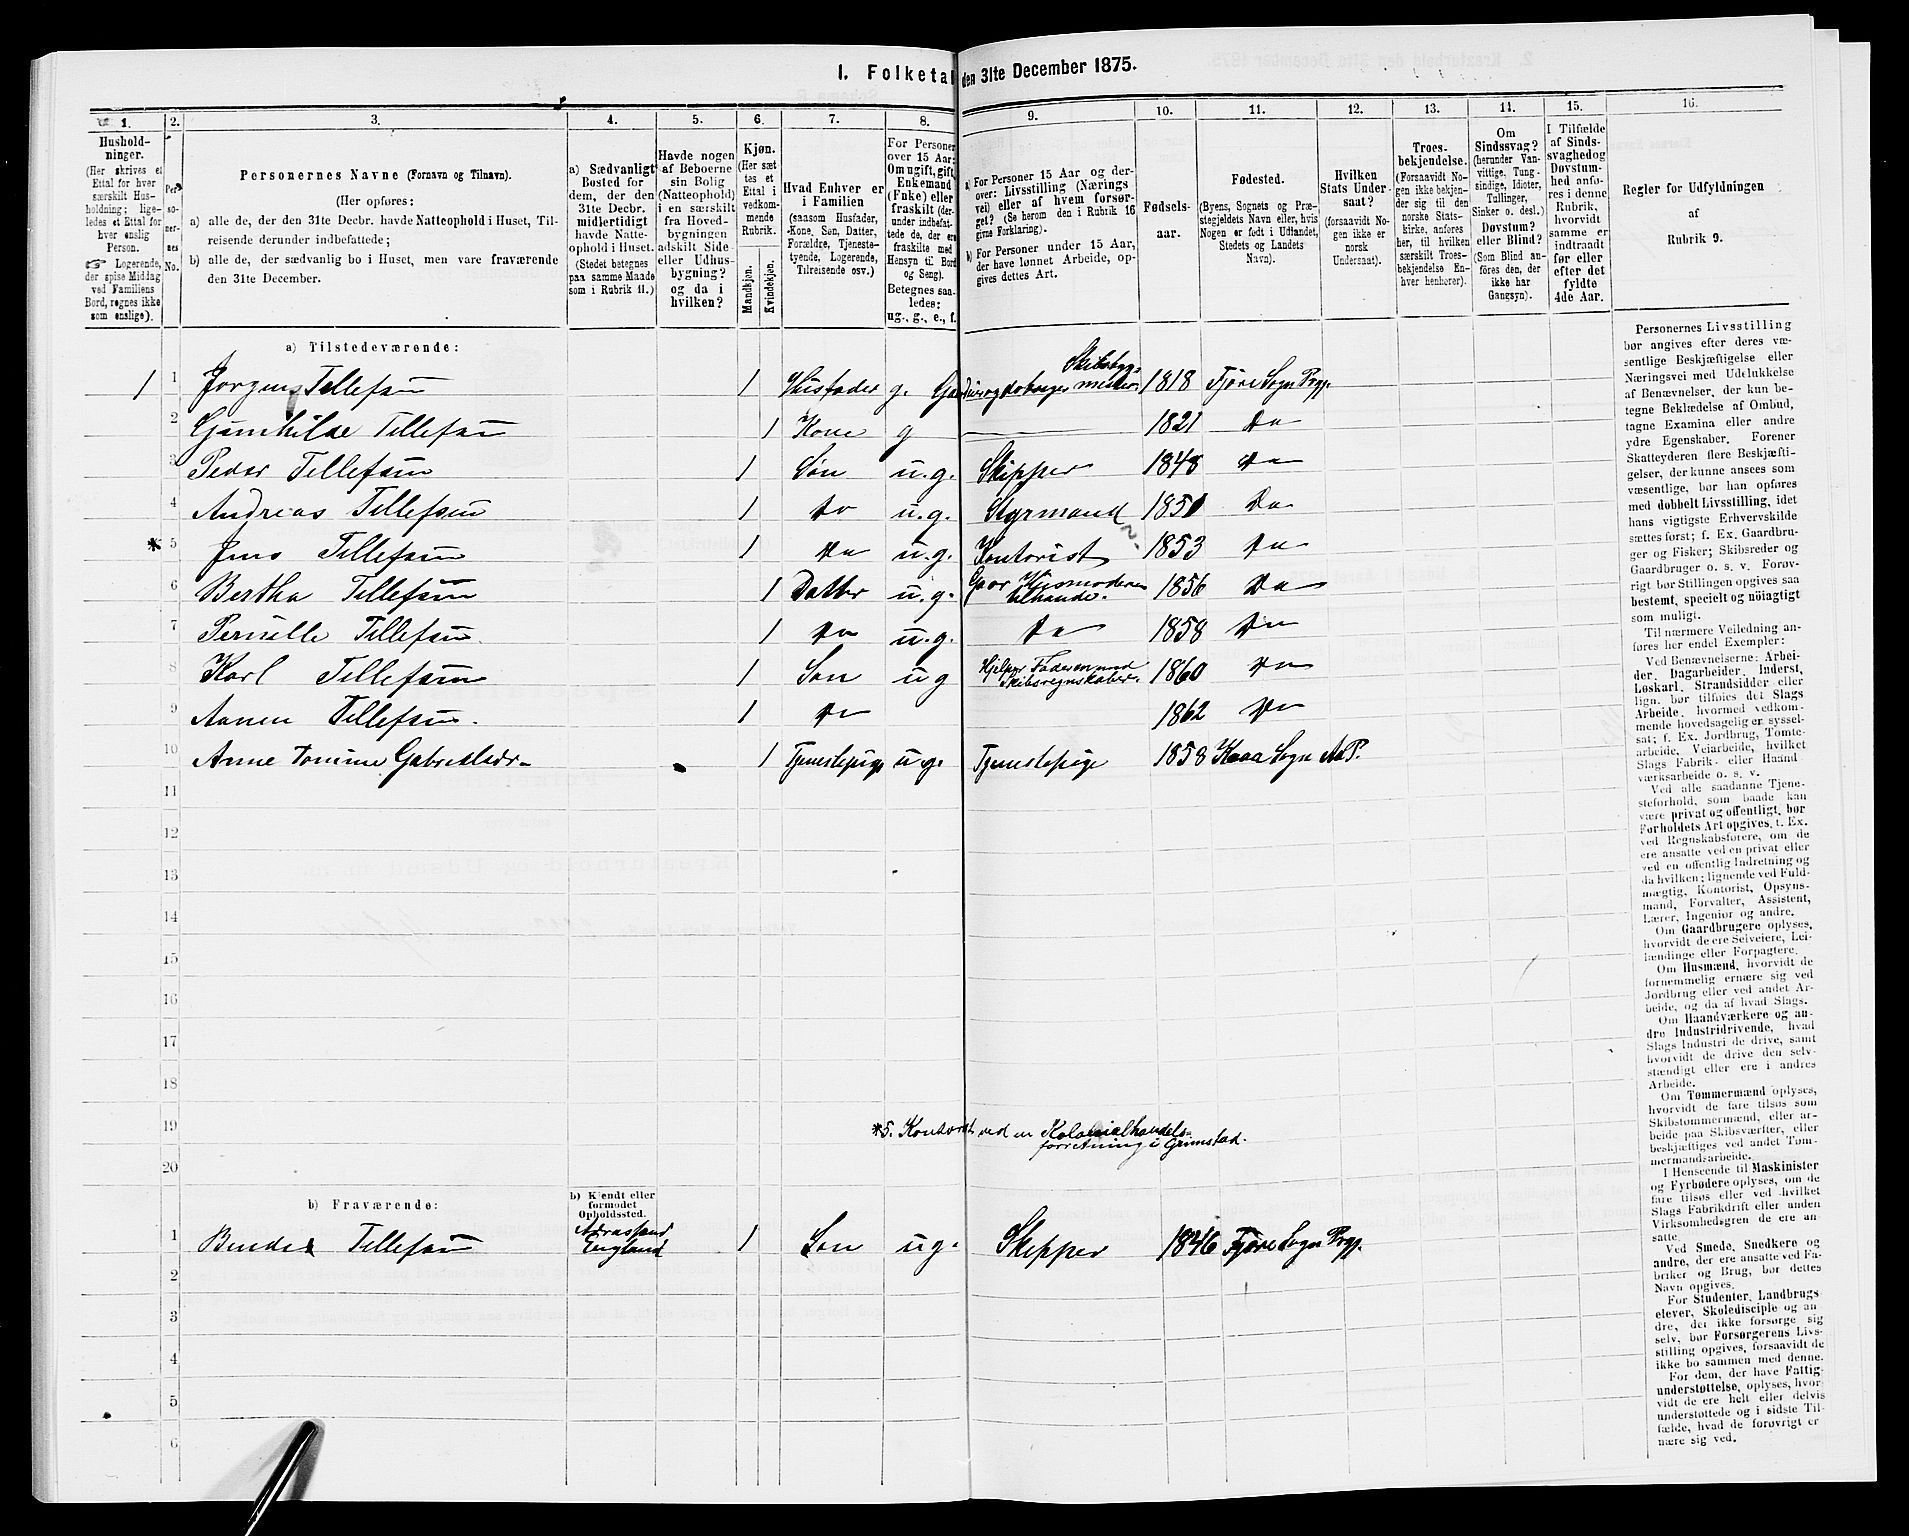 1. Folketal den 31te December 1875.
1. 2. 3. 4. 5. 6. 7. 8. 9. 10. 11. 12. 13. 14. 15. 16.
Hushold-
ninger.
(Her skrives et
Ettal for hver
særskilt Hus-
holdning; lige-
ledes et Ettal for
hver enslig
Person.
☞ Logerende,
der spise Middag
ved Familiens
Bord, regnes ikke
som enslige).
Per
so-
ner-
nes
No.
Personernes Navne (Fornavn og Tilnavn).
(Her opføres:
a) alle de, der den 31te Decbr. havde Natteophold i Huset, Til-
reisende derunder indbefattede;
b) alle de, der sædvanlig bo i Huset, men vare fraværende
den 31te December.
a) Sædvanligt
Bosted for
dem, der den
31te Decbr.
midlertidigt
havde Natte-
ophold i Huset.
(Stedet betegnes
paa samme Maade
som i Rubrik 11.)
Havde nogen
af Beboerne
sin Bolig
(Natteophold)
i en særskilt
fra Hoved-
bygningen
adskilt Side-
eller Udhus-
bygning?
og da i
hvilken?
Kjøn.
(Her sæt-
tes et
Ettal i
vedkom-
mende
Rubrik.
Mandkjøn.
Kvindekjøn.
Hvad Enhver er
i Familien
(saasom Husfader,
Kone, Søn, Datter,
Forældre, Tjeneste-
tyende, Logerende,
Tilreisende osv.)
For Personer
over 15 Aar:
Om ugift, gift,
Enkemand
(Enke) eller
fraskilt (der-
under indbefat-
tede de, der ere
fraskilte med
Hensyn til Bord
og Seng).
Betegnes saa-
ledes:
ug., g., e., f.
a) For Personer 15 Aar og der-
over: Livsstilling (Nærings
vei) eller af hvem forsør-
get? (Se herom den i Rubrik 16
givne Forklaring).
b) For Personer under 15 Aar,
der have lønnet Arbeide, op-
gives dettes Art.
Fødsels-
aar.
Fødested.
(Byens, Sognets og Præ-
stegjeldets Navn eller, hvis
Nogen er født i Udlandet,
Stedets og Landets
Navn).
Hvilken
Stats Under-
saat?
(forsaavidt No-
gen ikke er
norsk
Undersaat).
Troes-
bekjendelse.
(Forsaavidt No-
gen ikke bekjen-
der sig til den
norske Stats-
kirke, anføres
her, til hvilken
særskilt Troes-
bekjendelse En-
hver henhører).
Om
Sindssvag?
(herunder Van-
vittige, Tung-
sindige, Idioter,
Tullinger,
Sinker o. desl.)
Døvstum?
eller Blind?
(Som Blind an-
føres den, der
ikke har
Gangsyn).
I Tilfælde
af Sinds-
svaghed og
Døvstum-
hed anfø-
res i denne
Rubrik,
hvorvidt
samme er
indtraadt
før eller
efter det
fyldte
4de Aar.
Regler for Udfyldningen
af
Rubrik 9.
a) Tilstedeværende:
1 1 Jørgen Tellefsen 1 Husfader g. Gaardbruger og Skibsbyg-
mester 1818 Fjære Sogn Prgj.
2 Gunhilde Tellefsen 1 Kone g 1821 Do
3 Peder Tellefsen 1 Søn u.g. Skipper 1848 Do
4 Andreas Tellefsen 1 Do u.g. Styrmand 1851 Do
* 5 Jens Tellefsen 1 Do u.g. Kontorist 1853 Do
6 Bertha Tellefsen 1 Datter u.g. Gaar Husmoderen
tilhaande. 1856 Do
7 Pernille Tellefsen 1 Do u.g. Do 1858 Do
8 Karl Tellefsen 1 Søn ug Hjelper Faderen med
Skibsregnskaber. 1860 Do
9 Aanen Tellefsen. 1 Do 1862 Do
10 Anne Tomine Gabrielsdr. 1 Tjenestepige ug. Tjenestepige 1858 Sogn
11
12
13
14
15
16
17
18
19
20
*5. Kontorist ved en Kolonialhandels-
forretning i Grimstad.
b) Fraværende:
b) Kjendt eller
formodet
Opholdssted.
1 Tellefsen England 1 Søn ug. Skipper 1846 Fjære Sogn Prgj.
2
3
4
5
6
Personernes Livsstilling
bør angives efter deres væ-
sentlige Beskjæftigelse eller
Næringsvei med Udelukkelse
af Benævnelser, der kun be-
tegne Beklædelse af Ombud,
tagne Examina eller andre
ydre Egenskaber. Forener
Skatteyderen flere Beskjæfti-
gelser, der kunne ansees som
væsentlige, bør han opføres
med dobbelt Livsstilling, idet
hans vigtigste Erhvervskilde
sættes først; f. Ex. Gaardbru-
ger og Fisker; Skibsreder og
Gaardbruger o. s. v. Forøv-
rigt bør Stillingen opgives saa
bestemt, specielt og nöiagtigt
som muligt.
Til nærmere Veiledning an-
føres her endel Exempler:
Ved Benævnelserne: Arbei-
der, Dagarbeider, Inderst,
Løskarl, Strandsidder eller
lign. bør tilføies det Slags
Arbeide, hvormed vedkom-
mende hovedsagelig er syssel-
sat; f. Ex. Jordbrug, Tomte-
arbeide, Veiarbeide, hvilket
Slags Fabrik- eller Haand
værksarbeide o. s. v.
Ved alle saadanne Tjene-
steforhold, som baade kan
være privat og offentligt, bør
Forholdets Art opgives, t. Ex.
ved Regnskabsførere, om de
ere ansatte ved en privat eller
ved en offentlig Indretning og
da hvilken; lignende ved Fuld-
mægtig, Kontorist, Opsyns-
mand, Forvalter, Assistent,
Lærer, Ingeniør og andre.
Om Gaardbrugere oplyses,
hvorvidt de ere Selveiere, Lei-
lændinge eller Forpagtere.
Om Husmænd, hvorvidt de
fornemmelig ernære sig ved
Jordbrug eller ved andet Ar-
beide, og da af hvad Slags.
Om Haandværkere og an-
dre Industridrivende, hvad
Slags Industri de drive, samt
hvorvidt de drive den selv-
stændigt eller ere i andres
Arbeide.
Om Tømmermænd oplyses,
hvorvidt de fare tilsøs som
Skibstømmermænd, eller ar-
beide paa Skibsværfter, eller
beskjæftiges ved andet Tøm-
mermandsarbeide.
I Henseende til Maskinister
og Fyrbødere oplyses, om de
fare tilsøs eller ved hvilket
Slags Fabrikdrift eller anden
Virksomhedsgren de ere an-
satte.
Ved Smede, Snedkere og
andre, der ere ansatte ved Fa-
briker og Brug, bør dettes
Navn opgives.
For Studenter, Landbrugs
elever, Skoledisciple og an
dre, der ikke forsørge sig
selv, bør Forsørgerens Livs-
stilling opgives, forsaavidt de
ikke bo sammen med denne.
For dem, der have Fattig-
understøttelse, oplyses, hvor-
vidt de ere helt eller delvis
understøttede og i sidste Til-
fælde, hvad de forøvrigt er
nære sig ved.